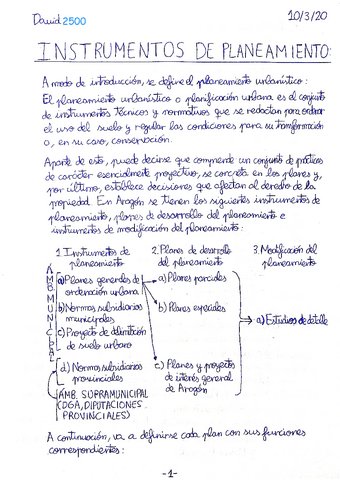 David 2500
10/3/20
INSTRUMENTOS DE PLANEAMIENTO:
A modo de introducción, se define el planeamiento urbanístico:
El planeamiento urbanístico o planificación urbana es el conjunto
de instrumentos técnicos y normativos que se redactan para ordenar
el uso del suelo y regular las condiciones para su transformación
o, en su caso, conservación.
Aparte de esto, puede decirse que comprende un conjunto de prácticas
de carácter esencialmente proyectivo, se concreta en los planes y,
por último, establece decisiones que afectan al derecho de la
propiedad. En Aragón se tienen los siguientes instrumentos de
planeamiento, planes de desarrollo del planeamiento e
instrumentos de modificación del planeamiento:
1. Instrumentos de
planeamiento
ÁMB. MUNICIPAL
a) Planes generales de
ordenación urbana
b) Normas subsidiarias
municipales
c) Proyecto de delimitación
de suelo urbano
d) Normas subsidiarias
provinciales
ÁMB. SUPRAMUNICIPAL
(DGA, DIPUTACIONES
PROVINCIALES)
2. Planes de desarrollo
del planeamiento
a) Planes parciales
b) Planes especiales
c) Planes y proyectos
de interés general
de Aragón
3. Modificación del
planeamiento
a) Estudios de detalle
A continuación, va a definirse cada plan con sus funciones
correspondientes:
-1-